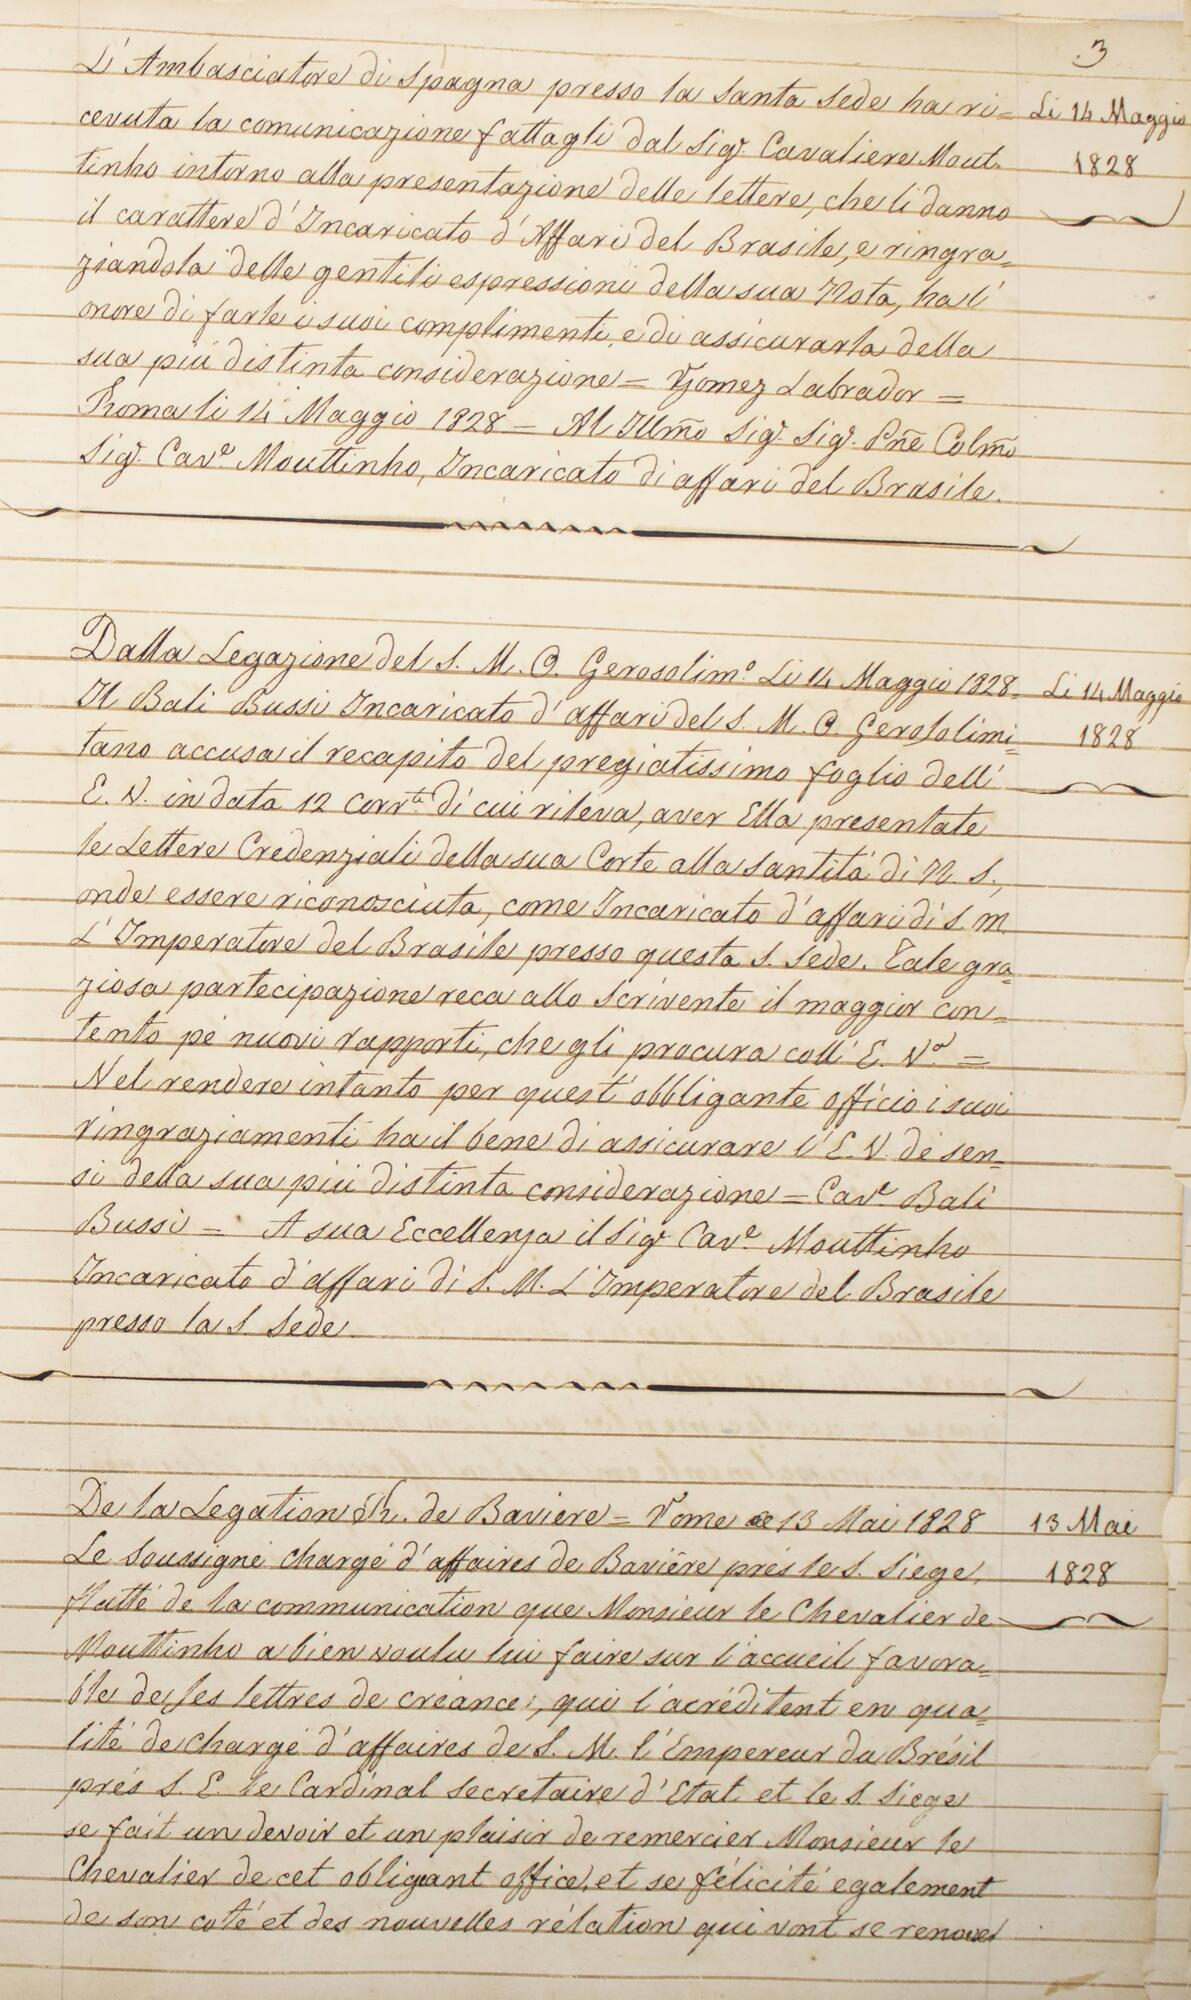 3
L'Ambasciatore di Spagna presso la Santa Sede ha ri=
Li 14 Maggio
1828
cevuta la comunicazione fattagli dal Sigr. Cavaliere Mout-
tinho intorno alla presentazione delle lettere, che li danno
il carattere d'Incaricato d'Affari del Brasile, e ringra=
ziandola delle gentili espressioni della sua Nota, ha l'
onore di farle i suoi complimenti, e di assicurarla della
sua più distinta considerazione = Gomez Labrador =
Roma li 14 Maggio 1828 = Al Illmo Sigr. Sigr. Pne Colmo
Sigr. Cave. Mouttinho, Incaricato di affari del Brasile.
Dalla Legazione del S. M. O. Gerosolimo. Li 14 Maggio 1828=
Li 14 Maggio
1828
Il Bali Bussi Incaricato d'affari del S. M. O. Gerosolimi=
tano accusa il recapito del pregiatissimo foglio dell'
E. V. in data 12 corrte. di cui rileva, aver Ella presentate
le Lettere Credenziali della sua Corte alla Santità di N. S.,
onde essere riconosciuta, come Incaricato d'affari di S. M.
L'Imperatore del Brasile presso questa S. Sede. Tale gra=
ziosa partecipazione reca allo Scrivente il maggior con=
tento pe nuovi rapporti, che gli procura coll'E. Va =
Nel rendere intanto per quest'obbligante officio i suoi
ringraziamenti ha il bene di assicurare l'E. V. de sen=
si della sua più distinta considerazione = Cave Bali
Bussi = A sua Eccellenza il Sigr Cave. Mouttinho
Incaricato d'affari di S. M. L'Imperatore del Brasile
presso la S. Sede.
De la Legation Rle. de Baviere = Rome ce 13 Mai 1828
13 Mai
1828
Le Soussigné Chargé d'affaires de Bavière prés le S. Siege,
flatté de la communication que Monsieur le Chevalier de
Mouttinho a bien voulu lui faire sur l'accueil favora=
ble de ses lettres de créance, qui l'acréditent en qua=
lité de chargé d'affaires de S. M. l'Empereur du Brésil
prés S. E. le Cardinal Secretaire d'Etat et le S. Siege
se fait un devoir et un plaisir de remercier Monsieur le
Chevalier de cet obligeant office, et se félicité egalement
de son coté et des nouvelles rélation qui vont se renouer